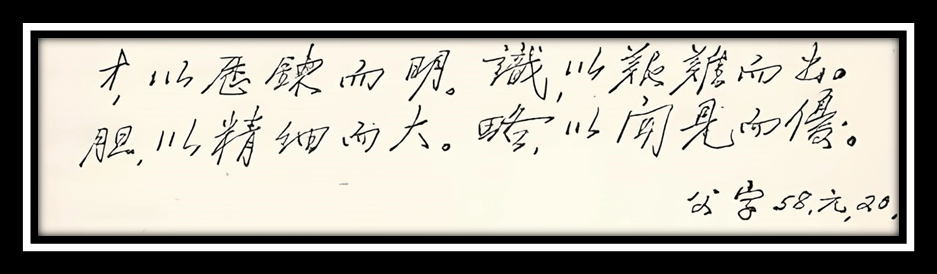 才,以歷鍊而明。識,以艱難而出。
胆,以精细而大。略,以闻見而優。
父字58,元,20.